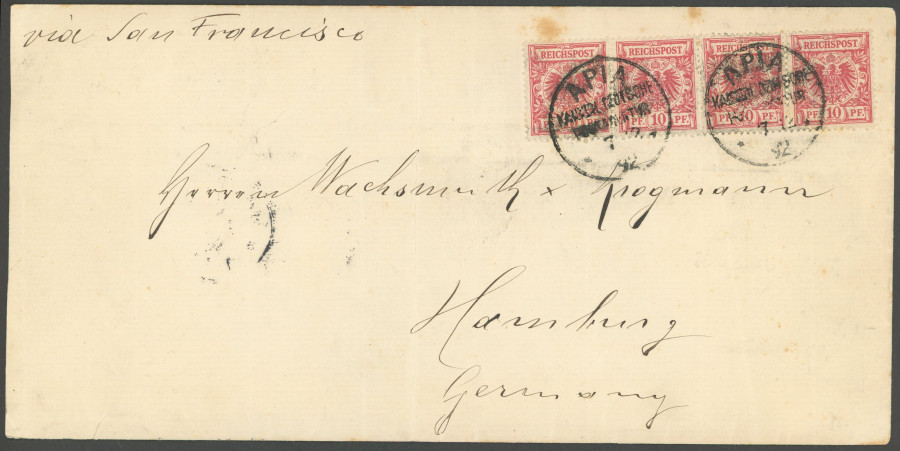 via San Francisco
REICHSPOST REICHSPOST REICHSPOST REICHSPOST
PF. 10 PF. 10 PF. 10 PF.
APIA
KAISERL. DEUTSCHE
7
92
APIA
KAISERL. DEUTSCHE
7
92
Herren Wachsmuth x Krogmann
Hamburg
Germany